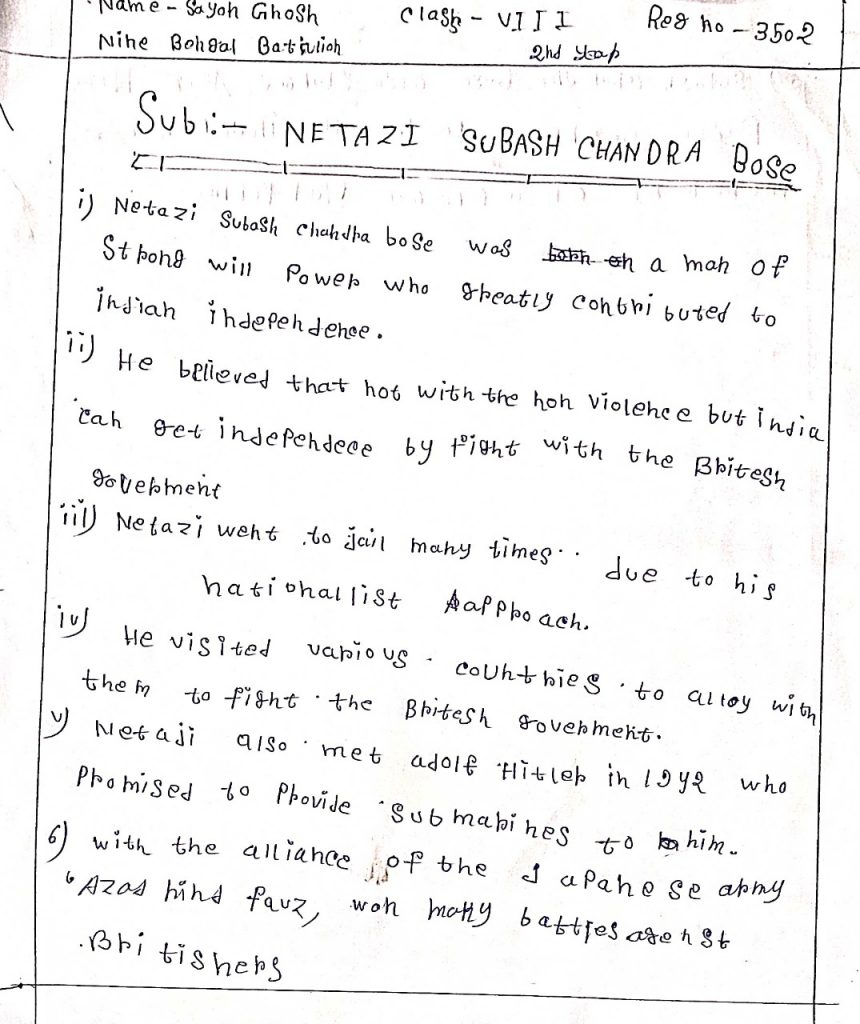 Name - Sayon Ghosh Class - VIII Reg no - 3502
Nine Bengal Battalion 2nd year
Sub:- NETAZI SUBASH CHANDRA BOSE
i) Netazi Subash chandra bose was born on a man of
Strong will Power who greatly contributed to
indian independence.
ii) He believed that not with the non violence but india
can get independece by fight with the Britesh
goverment
iii) Netazi went to jail many times.. due to his
nationallist Aapproach.
iv) He visited various countries to alloy with
them to fight the Britesh goverment.
v) Netaji also met adolf Hitler in 1942 who
Promised to Provide submarines to him.
6) with the alliance of the Japanese army
'Azad hind fauz, won many battles agenst
Britishers